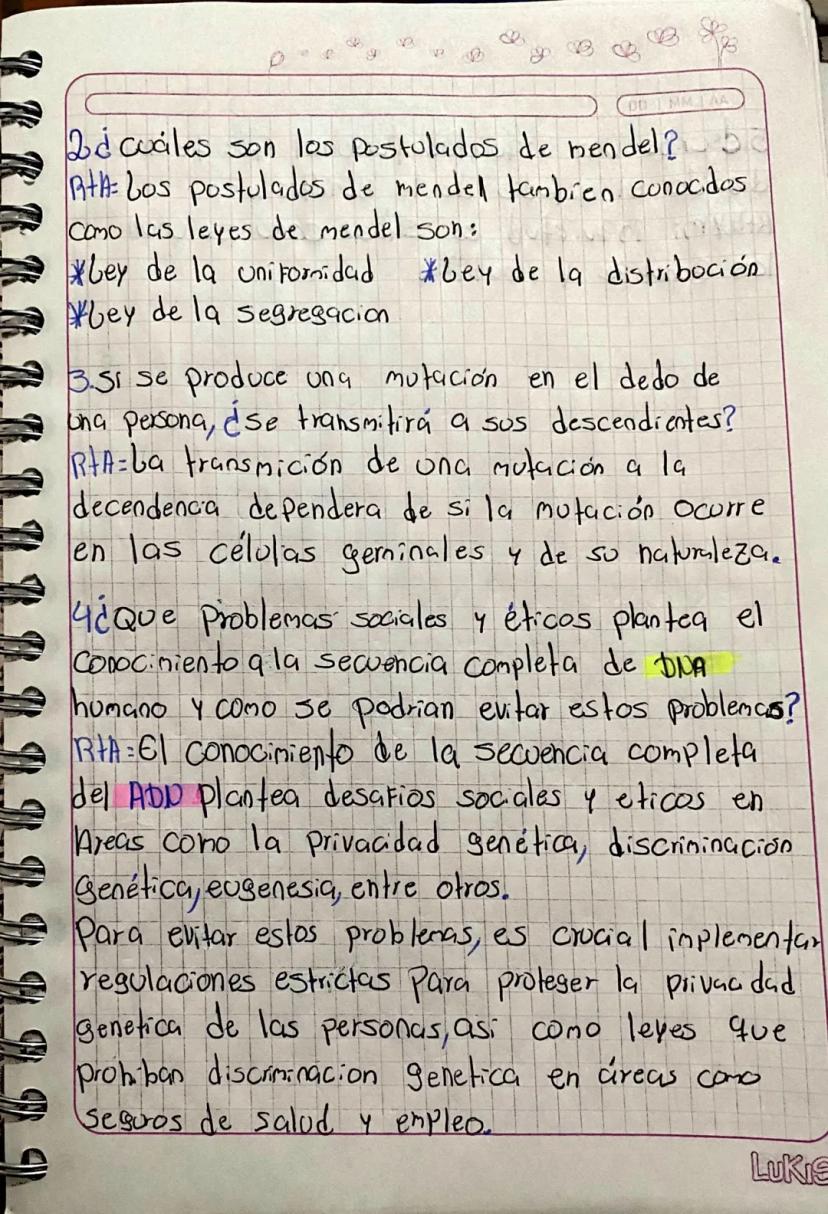 DD | MM | AA
2¿cuáles son los postulados de mendel?
RtA=Los postulados de mendel tambien conocidos
como las leyes de mendel son:
*Ley de la uniformidad *Ley de la distriboción
*Ley de la segregacion
3.si se produce una mutación en el dedo de
una persona, ¿se transmitirá a sus descendientes?
RtA=La transmición de una mutación a la
decendencia dependera de si la mutación ocurre
en las células germinales y de su naturaleza.
4¿Que problemas sociales y éticos plantea el
conocimiento a la secuencia completa de DNA
humano y como se podrian evitar estos problemas?
RtA=El conocimiento de la secuencia completa
del ADN plantea desafios sociales y eticos en
Areas como la privacidad genética, discriminacion
genética, eugenesia, entre otros.
Para evitar estos problemas, es crucial inplementar
regulaciones estrictas para proteger la privacidad
genetica de las personas, asi como leyes que
prohiban discriminacion genetica en áreas como
seguros de salud y empleo.
LUKIS